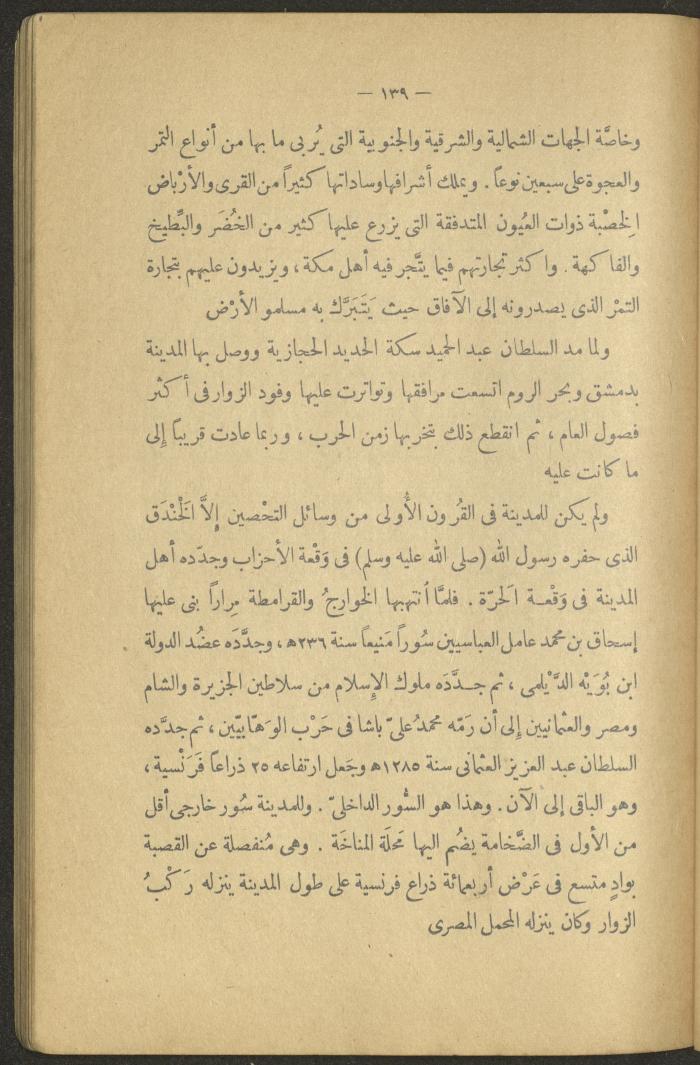 — ١٣٩ —
وخاصَّة الجهات الشمالية والشرقية والجنوبية التى يُربى ما بها من أنواع التمر
والعجوة على سبعين نوعاً . ويملك أشرافها وساداتها كثيراً من القرى والأرْباض
الخصْبة ذوات العُيون المتدفقة التى يزرع عليها كثير من الخُضَر والبِّطيخ
والفاكهة . واكثر تجارتهم فيما يتَّجر فيه أهل مكة ، ويزيدون عليهم بتجارة
التمْر الذى يصدرونه إلى الآفاق حيث يَتَبَرَّك به مسلمو الأرْض
ولما مد السلطان عبد الحميد سكة الحديد الحجازية ووصل بها المدينة
بدمشق وبحر الروم اتسعت مرافقها وتواترت عليها وفود الزوار فى أكثر
فصول العام ، ثم انقطع ذلك بتخربها زمن الحرب ، وربما عادت قريباً إلى
ما كانت عليه
ولم يكن للمدينة فى القُرون الأُولى من وسائل التحْصين إلاَّ الخَنْدَق
الذى حفره رسول الله (صلى الله عليه وسلم) فى وَقْعة الأحزاب وجدّده أهل
المدينة فى وَقْعـة الَحرّة . فلمَّا اُنتهبها الخوارجُ والقرامطة مِراراً بنى عليها
إسحاق بن محمد عامل العباسيين سُوراً مَنيعاً سنة ٢٣٦ه ، وجدَّدَه عضُد الدولة
ابن بُوَيْه الدَّيْلمى ، ثم جـدَّدَه ملوك الإسلام من سلاطين الجزيرة والشام
ومصر والعثمانيين إلى أن رَمّه محمدُ علىّ باشا فى حَرْب الوَهّابيّين ، ثم جدَّده
السلطان عبد العزيز العثمانى سنة ١٢٨٥ه وجَعل ارتفاعه ٢٥ ذراعاً فَرَنْسية ،
وهو الباقى إلى الآن . وهذا هو السُّور الداخلىّ . وللمدينة سُور خارجى أقل
من الأول فى الضَّخامة يضُم اليها مَحلَة المناخَة . وهى مُنفصلة عن القصبة
بوادٍ متسع فى عَرْض أربعمائة ذراع فرنسية على طول المدينة ينزله رَكْبُ
الزوار وكان ينزله المحمل المصرى